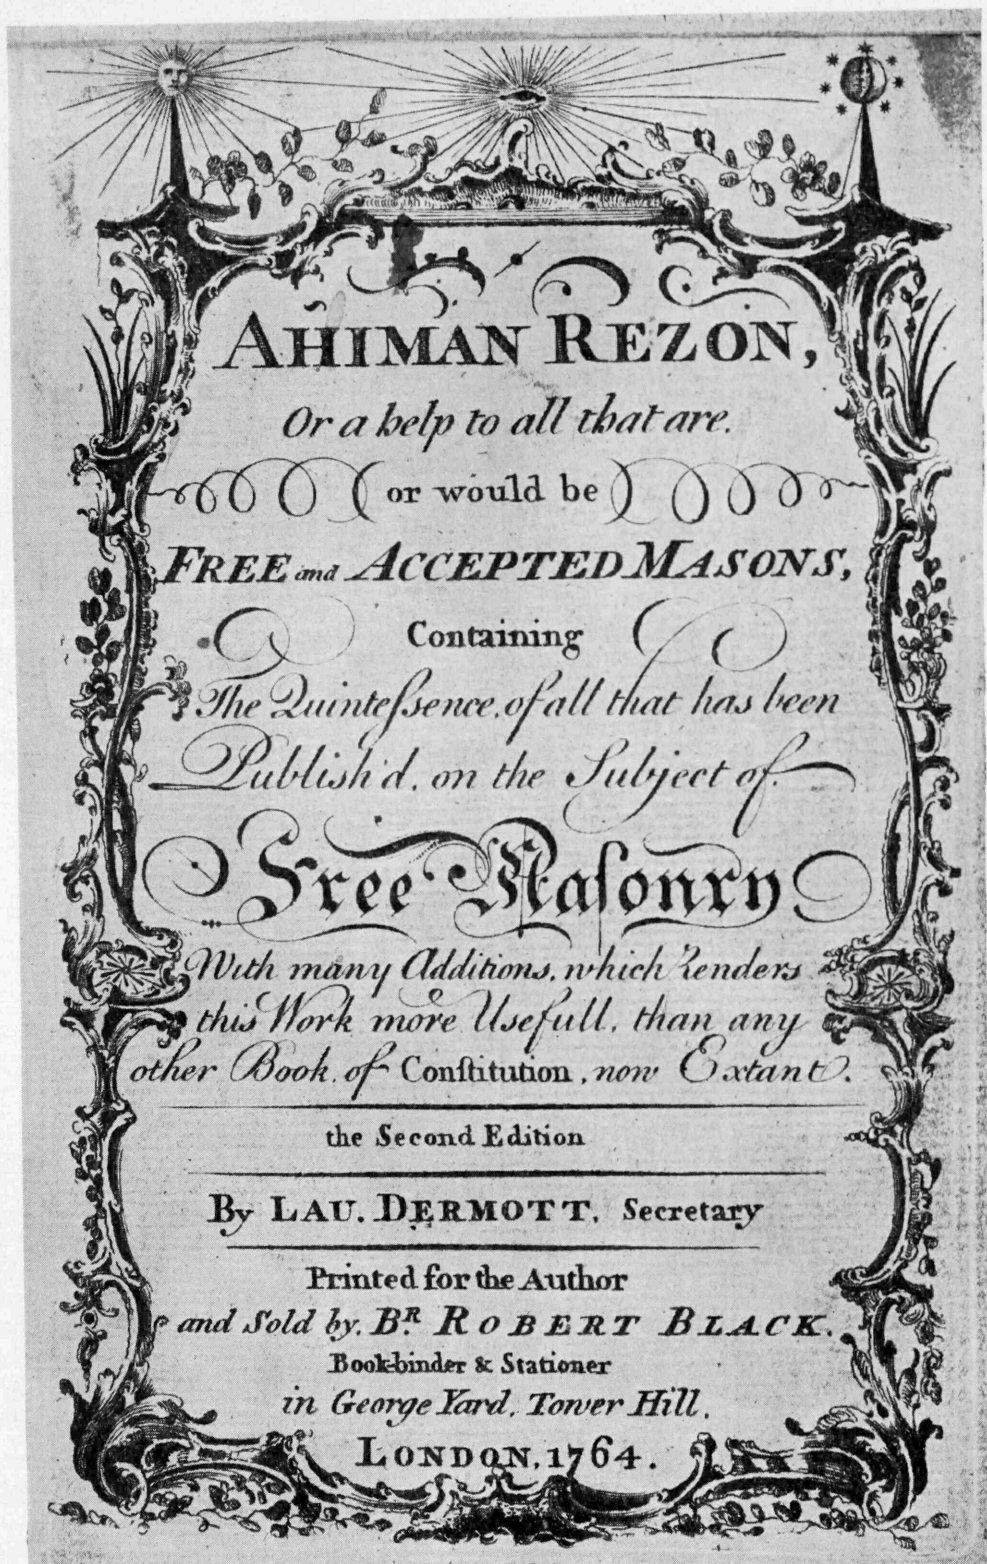 AHIMAN REZON,
Or a help to all that are.
or would be
FREE and ACCEPTED MASONS,
Containing
The Quinteſsence, of all that has been
Publish'd, on the Subject of
Free Maſonry
With many Additions, which renders
this Work more Usefull, than any
other Book, of Conſtitution, now Extant.
the Second Edition
By LAU. DERMOTT, Secretary
Printed for the Author
and Sold by. BR. ROBERT BLACK.
Book-binder & Stationer
in George Yard, Tower Hill,
LONDON, 1764.